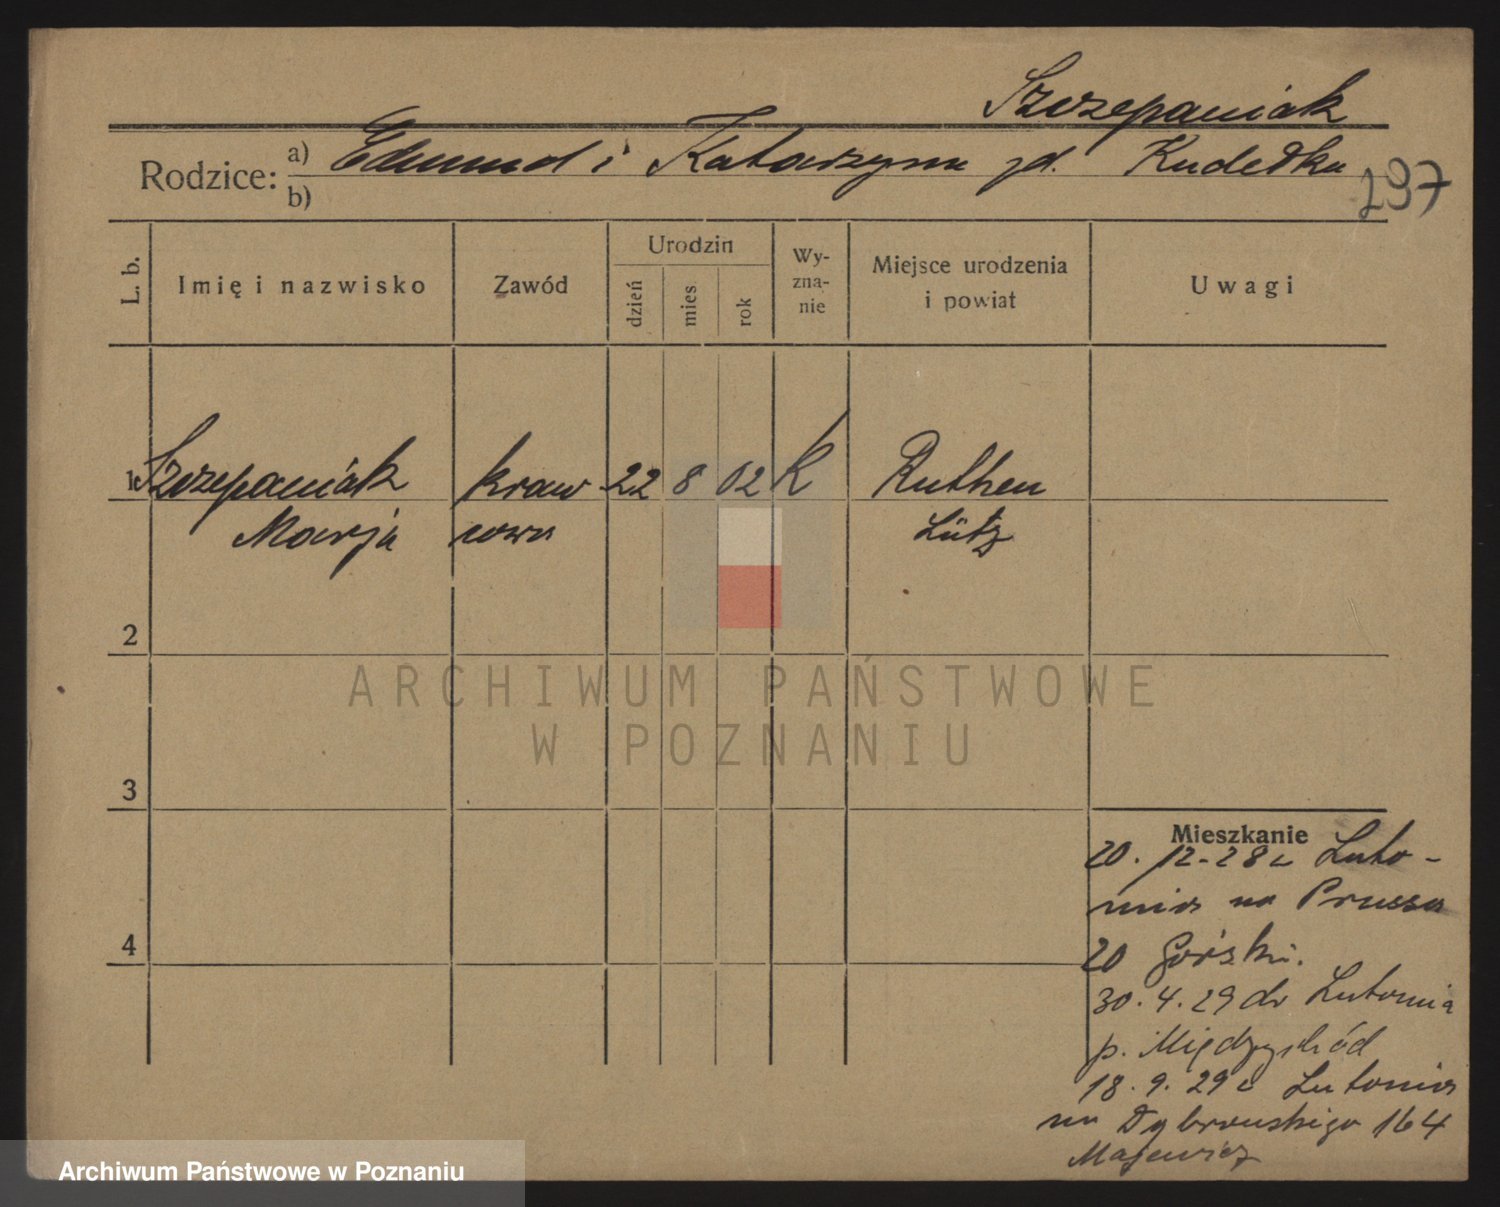 Szczepaniak
Rodzice: a) Edmund i Katarzyna zd. Kudełka
b)
297
L. b.
Imię i nazwisko
Zawód
Urodzin
dzień
mies
rok
Wy-
zna-
nie
Miejsce urodzenia
i powiat
Uwagi
1 Szczepaniak kraw 22 8 02 K Ruthen
Marja cowa Lütz
2
3
4
Mieszkanie
20. 12-28 z Luto-
mia na Prusa
20 Górski.
30. 4. 29 do Lutomia
p. Międzychód
18. 9. 29 z Lutomia
na Dąbrowskiego 164
Majewicz
ARCHIWUM PAŃSTWOWE
W POZNANIU
Archiwum Państwowe w Poznaniu